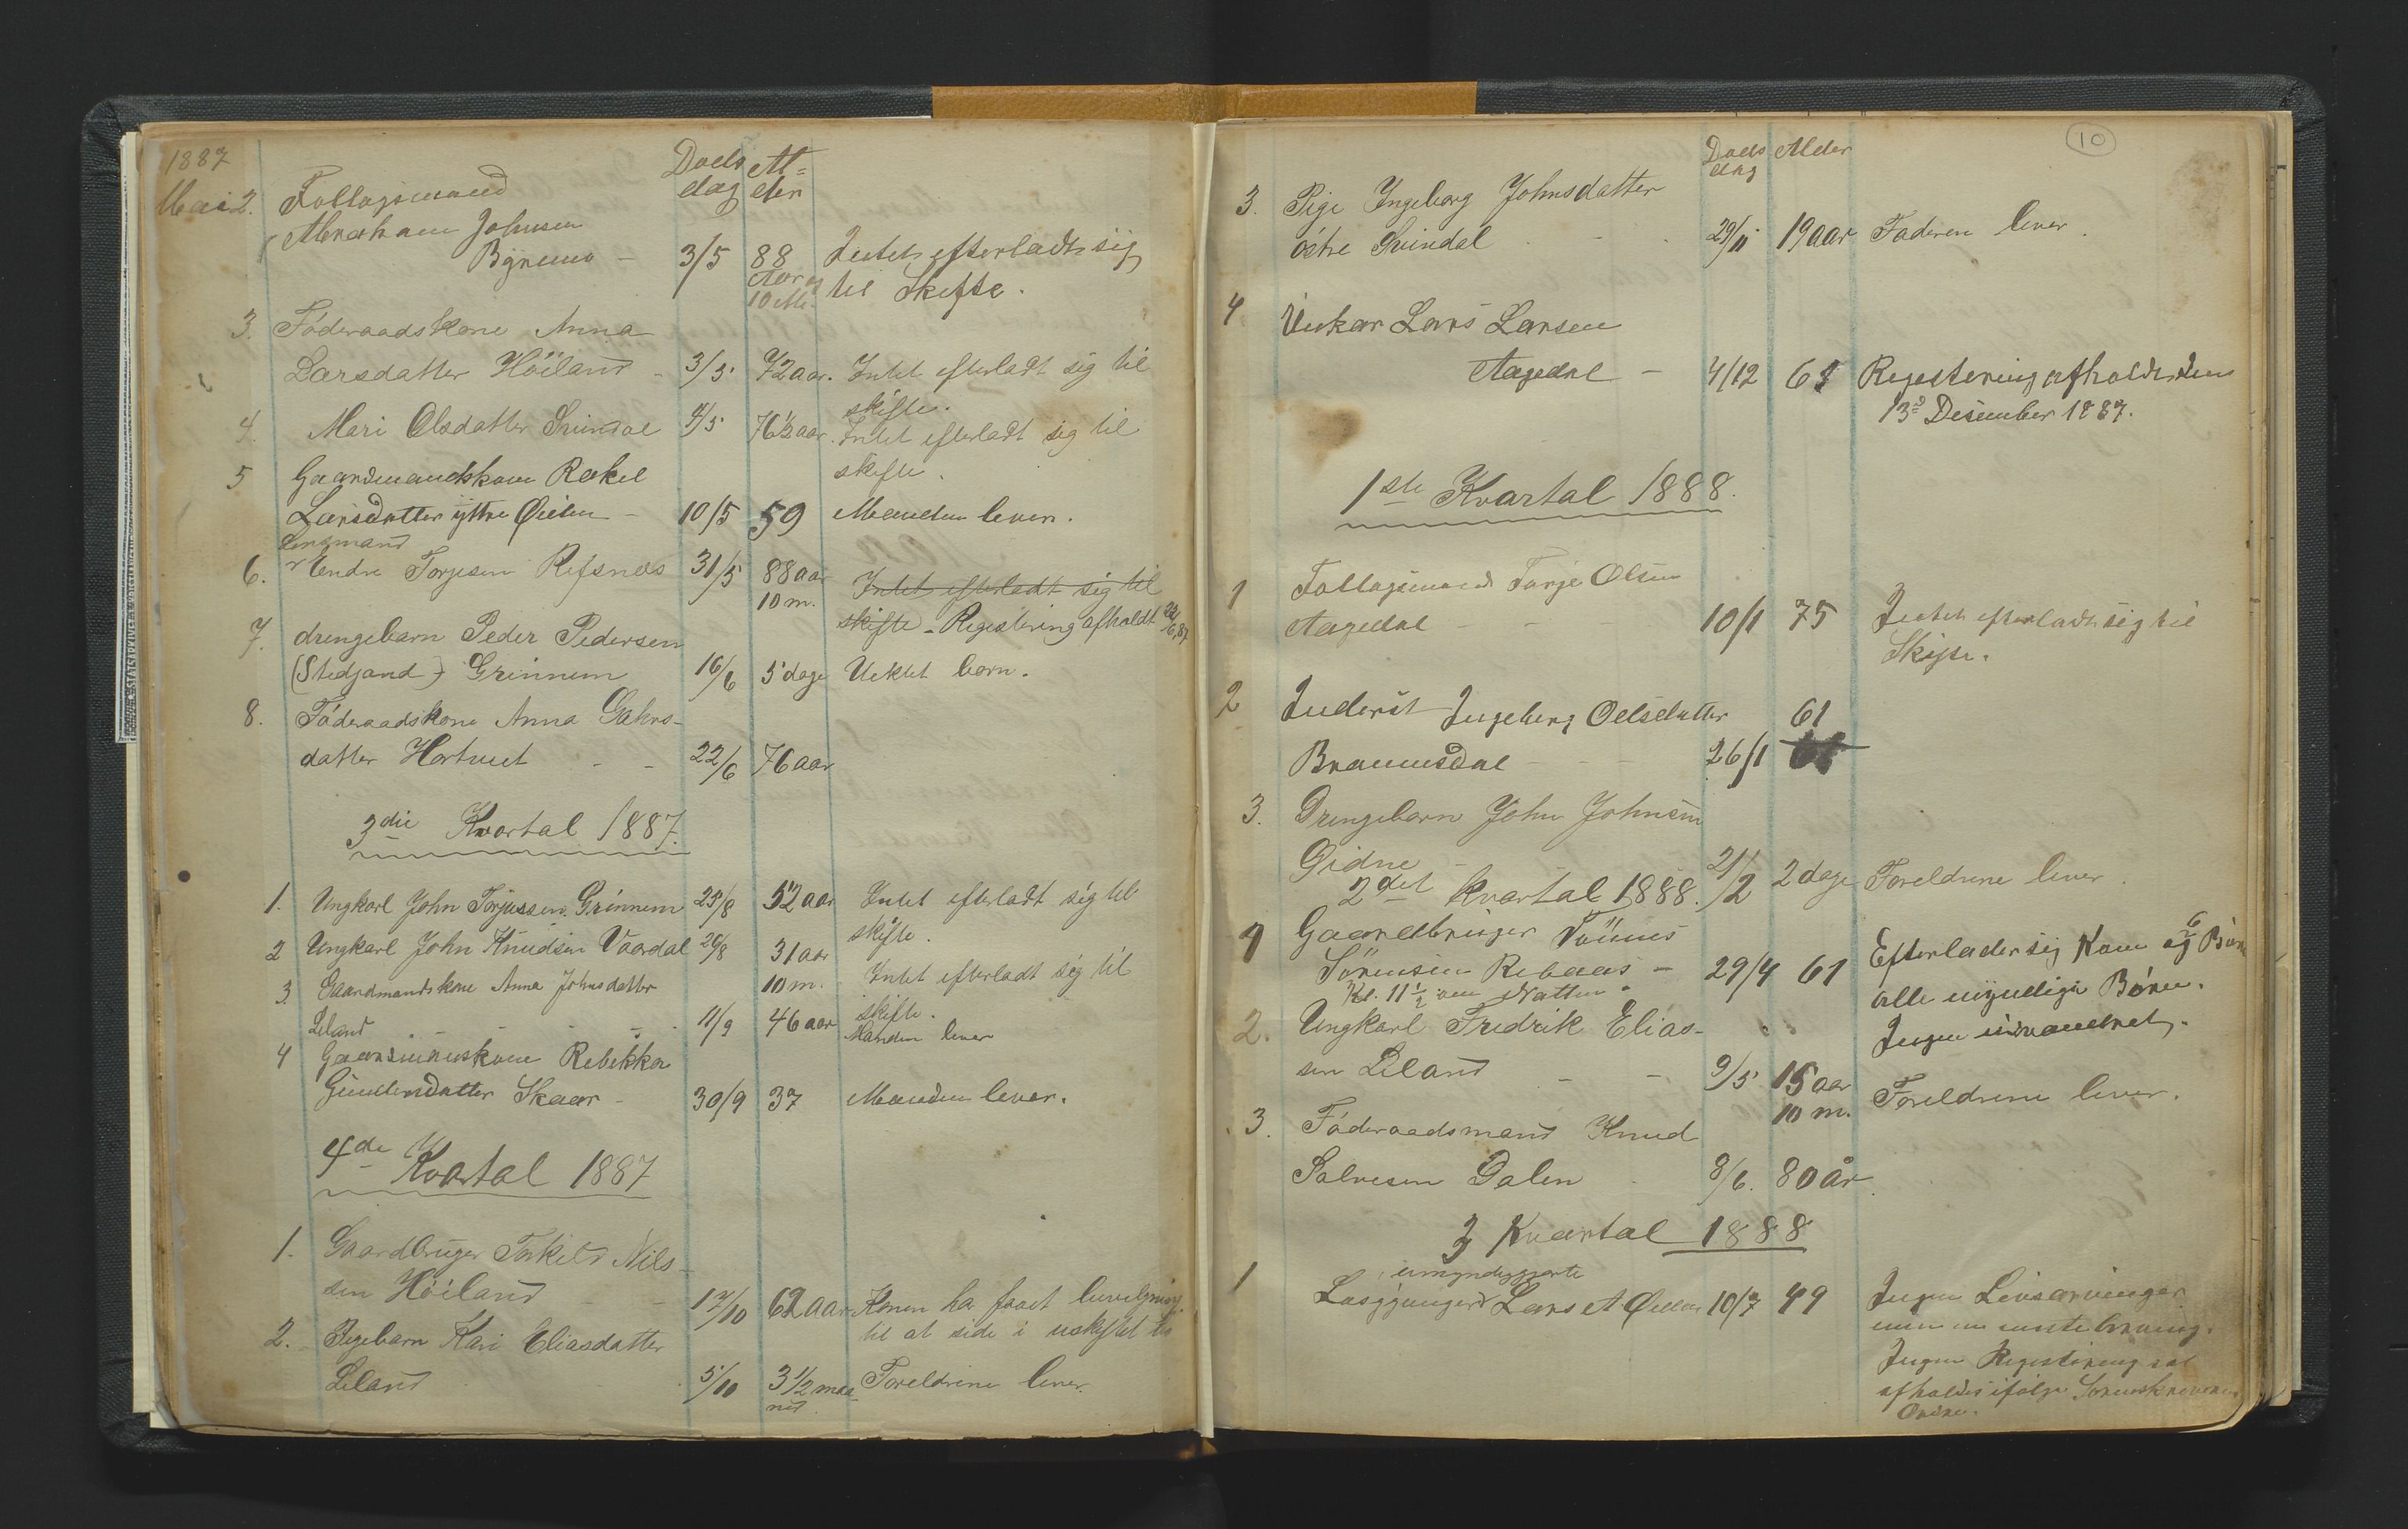 1887
Døds Al=
dag der
Mai 2. Follogsmand
Abraham Johnsen
Bgremo - 3/5 88 Intet efterladt sig
Aar og til Skifte.
10 M
3. Föderaadskone Anna
Larsdatter Höiland - 3/5 72 aar. Intet efterladt sig til
skifte.
4. Mari Olsdatter Svindal 4/5 76½ aar. Intet efterladt sig til
skifte.
5 Gaardmandskone Rakel
Larsdatter ÿttre Øielen - 10/5 59 Manden lever.
Lensmand
6. Endre Torjesen Refsnæs 31/5 88 aar Intet efterladt sig til
10 m. skifte - Registering afholdt 22/6.87
7. drengebarn Peder Pedersen
(Stedjand) Grinnem 16/6 5 dage Uektet barn.
8. Föderaadskone Anna Gahrs-
datter Hortvet - - 22/6 76 aar
3die Kvartal 1887.
1. Ungkarl John Torjussen Grinnem 25/8 52 aar Intet efterladt sig til
skifte.
2 Ungkarl John Knudsen Vaardal 26/8 31 aar
10 m. Intet efterladt sig til
skifte.
3. Gaardmandskone Anna Johnsdatter
Leland - - - - 11/9 46 aar Manden lever
4 Gaardmanskone Rebekka
Gundersdatter Skaar - 30/9 37 Manden lever.
4de Kvartal 1887
1. Gaardbruger Torkild Nils-
sen Höiland - - 17/10 62 aar Konen har faaet bevilgning
til at side i uskiftet bo
2. Pigebarn Kari Eliasdatter
Leland 5/10 3½ maa- Foreldrene lever.
ned
10
Døds Alder
dag
3. Pige Ingeborg Johnsdatter
östre Svindal - . 29/11 19 aar Faderen lever.
4 Unkar Lars Larsen
Aagedal - 4/12 61 Registering afholdes den
13de Desember 1887.
1ste Kvartal 1888.
1 Follagsmand Torje Olsen
Aagedal - - 10/1 75 Intet efterladt sig til
Skifte.
2 Inderst Ingeborg Oelsdatter 61
Braunsdal - - - 26/1
3. Drengebarn John Johnsen
Gidne - 21/2 2 dage Foreldrene lever.
2det Kvartal 1888.
1 Gaardbruger Tönnes
Sörensen Rebaas - 29/4 61 Efterlader sig Kone og 6 Börn
Kl. 11½ om Natten. alle myndige Börn.
Ingen udvandret.
2. Ungkarl Fredrik Elias-
sen Leland - - 9/5 15 aar
10 m. Foreldrene lever.
3. Föderaadsmand Knud
Salvesen Dalen - 8/6. 80 år.
3 Kvartal 1888
umyndiggjorte
1 Losgjænger Lars A. Øielen 10/7 49 Ingen Livsarvinger
Ingen Registering sal
afholdes ifölge Sorenskriverens
Ordre.